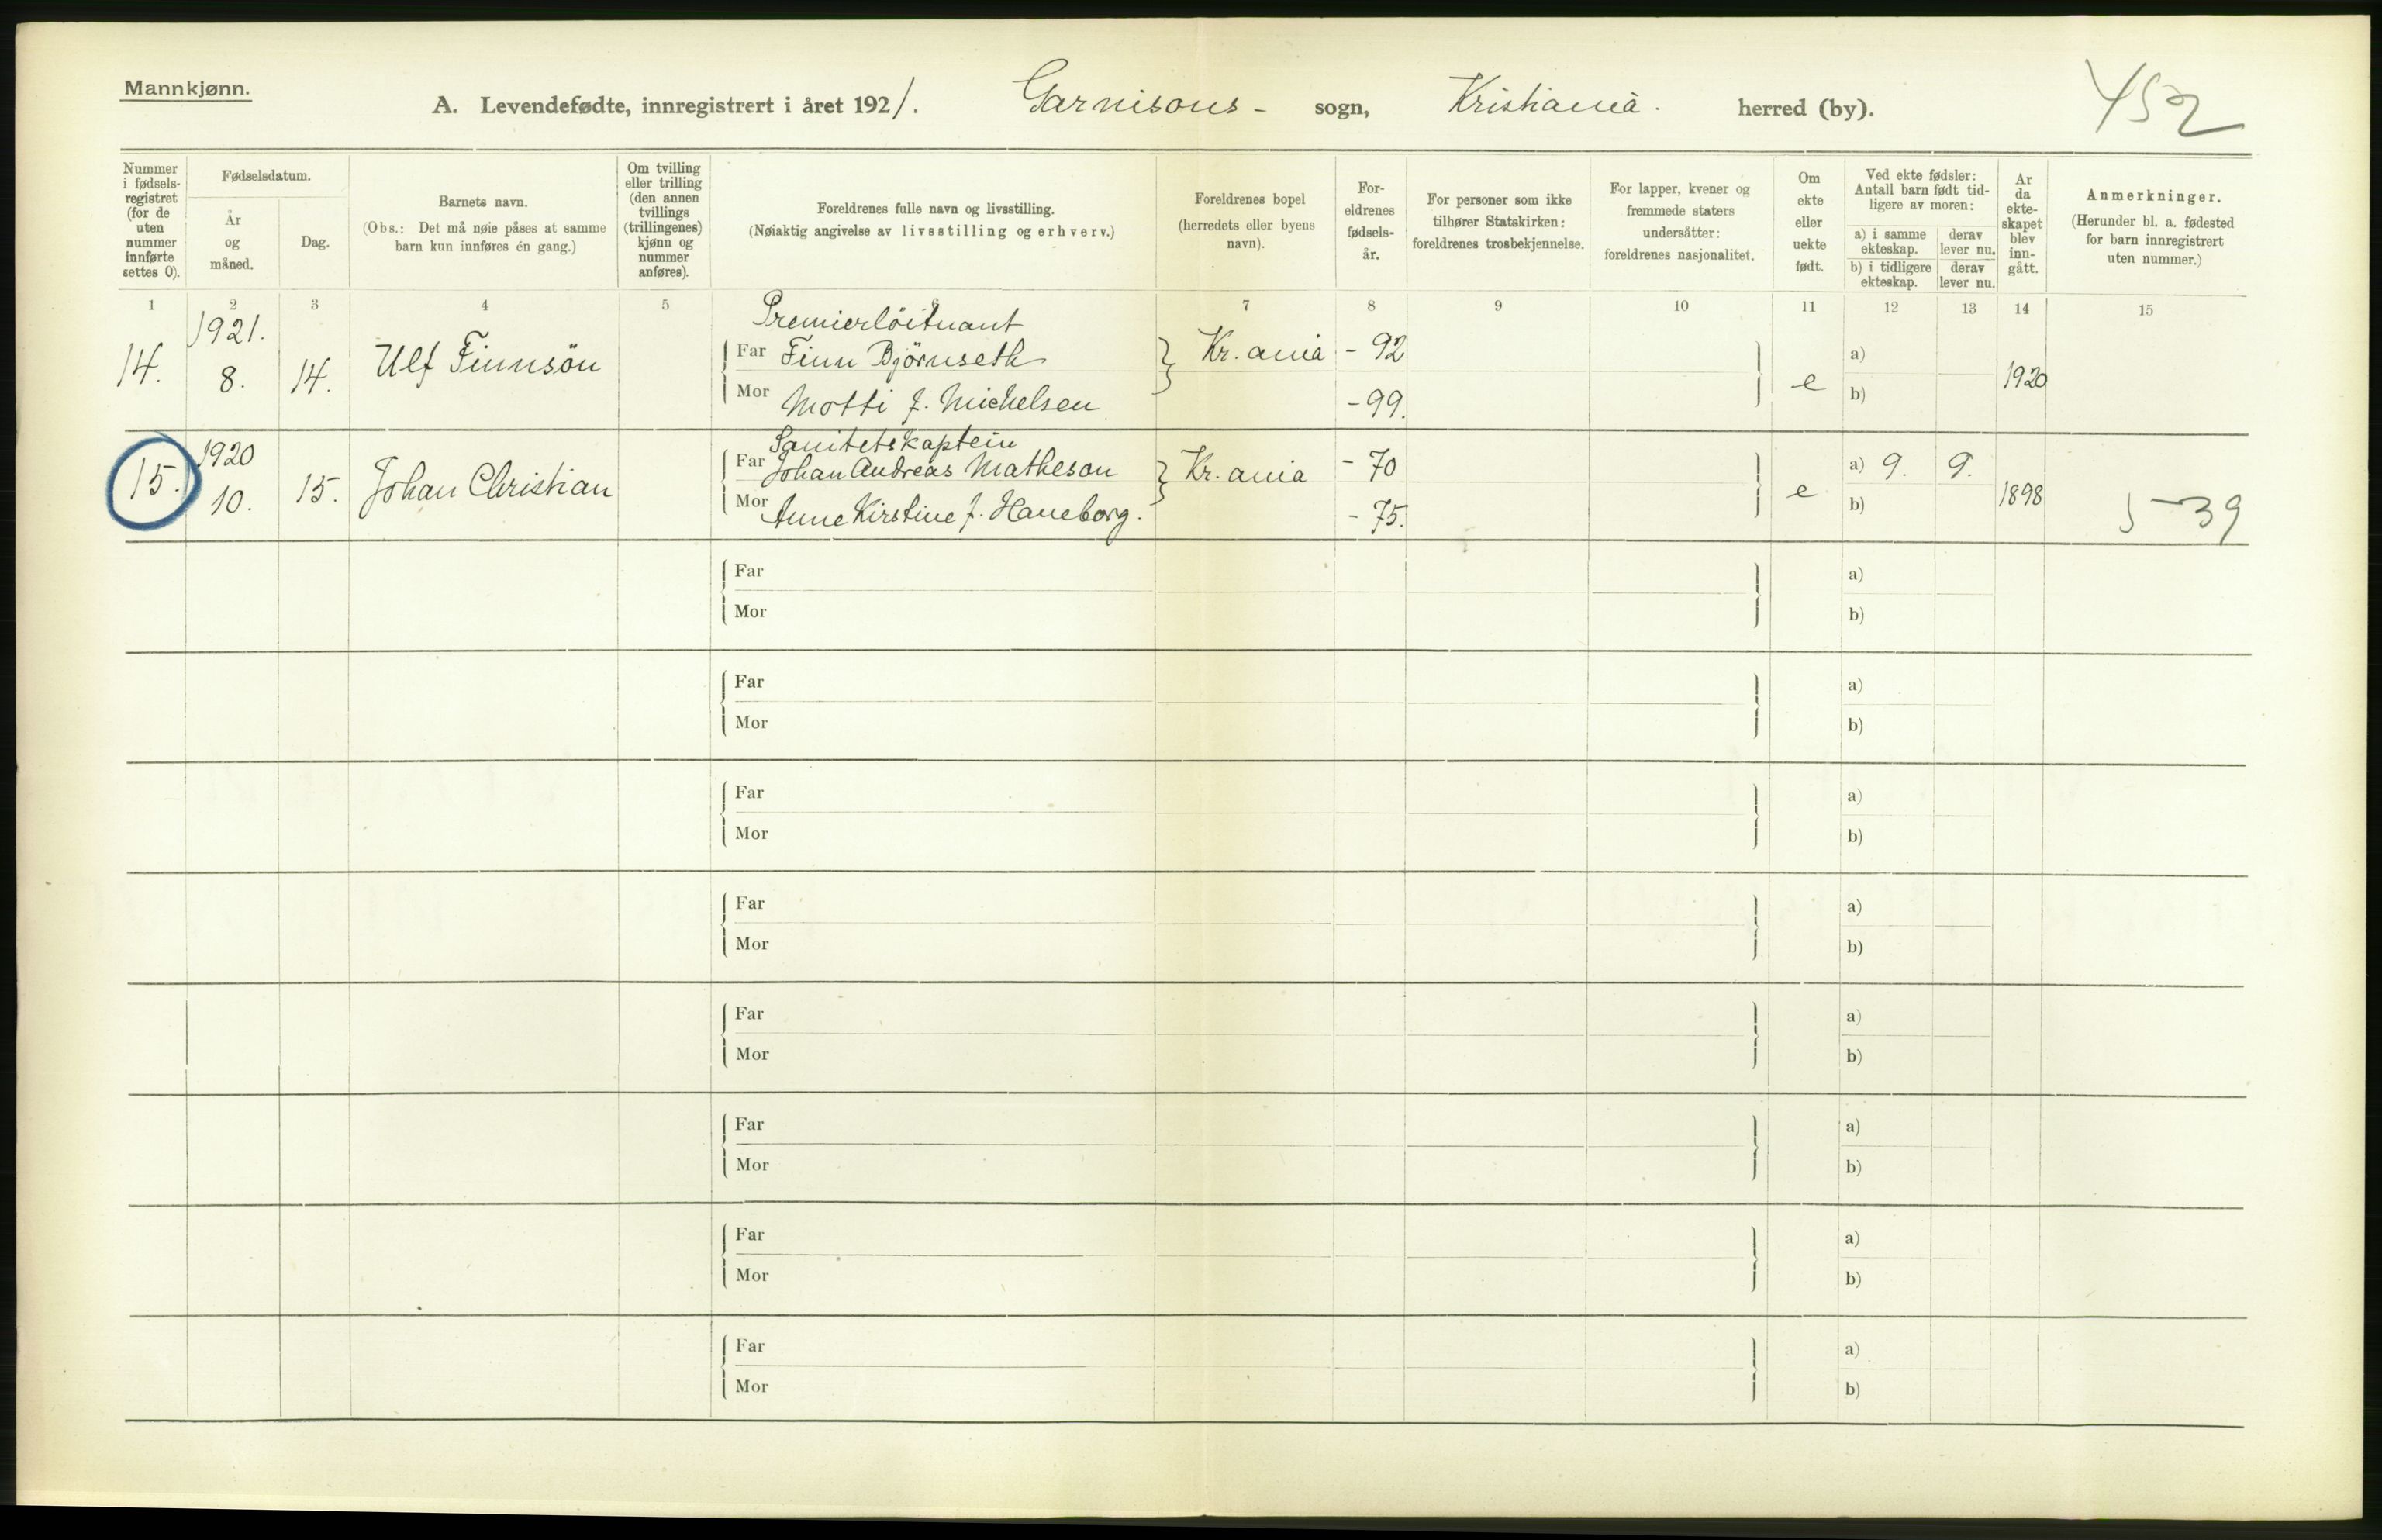 Mannkjønn.
A. Levendefødte, innregistrert i året 1921. Garnisons- sogn, Kristiania. herred (by).
452
Nummer i fødsels-registret (for de uten nummer innførte settes 0).
Fødselsdatum.
År og måned.
Dag.
Barnets navn.
(Obs.: Det må nøie påses at samme barn kun innføres én gang.)
Om tvilling eller trilling (den annen tvillings (trillingenes) kjønn og nummer anføres).
Foreldrenes fulle navn og livsstilling.
(Nøiaktig angivelse av livsstilling og erhverv.)
Foreldrenes bopel
(herredets eller byens navn).
For-eldrenes fødsels-år.
For personer som ikke tilhører Statskirken: foreldrenes trosbekjennelse.
For lapper, kvener og fremmede staters undersåtter: foreldrenes nasjonalitet.
Om ekte eller uekte født.
Ved ekte fødsler: Antall barn født tid-ligere av moren:
a) i samme ekteskap.
derav lever nu.
b) i tidligere ekteskap.
derav lever nu.
År da ekte-skapet blev inn-gått.
Anmerkninger.
(Herunder bl. a. fødested for barn innregistrert uten nummer.)
1 2 3 4 5 6 7 8 9 10 11 12 13 14 15
1921.
Premierlöitnant
14. 8. 14. Ulf Finnsön Far Finn Björnseth Kr.ania - 92 e a) 1920
Mor Motti f. Michelsen - 99. b)
1920
Sanitetskaptein
15. 10. 15. Johan Christian Far Johan Andreas Matheson Kr.ania - 70 e a) 9. 9. 1898
Mor Anne Kirstine f. Haneborg. - 75. b)
5-39
Far a)
Mor b)
Far a)
Mor b)
Far a)
Mor b)
Far a)
Mor b)
Far a)
Mor b)
Far a)
Mor b)
Far a)
Mor b)
Far a)
Mor b)